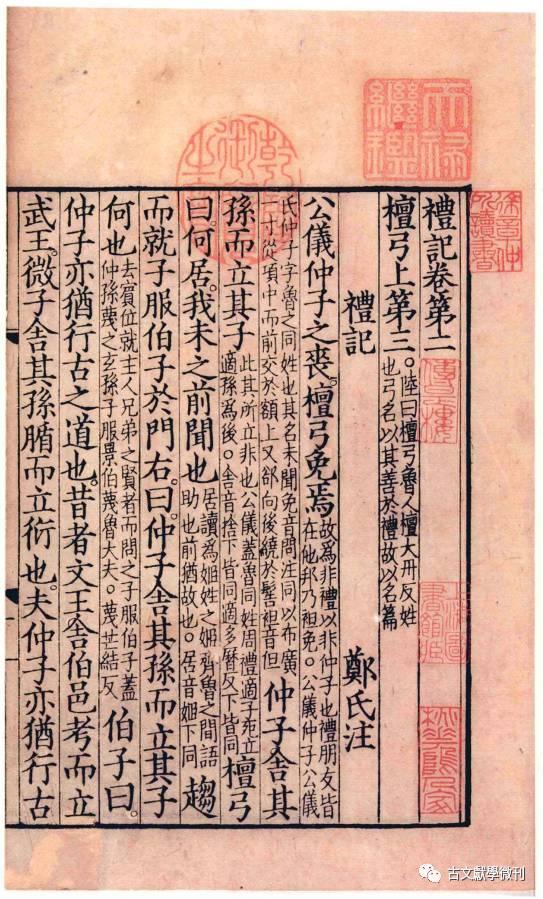 禮記卷第二
檀弓上第三。陸曰檀弓魯人檀大丹反姓
也弓名以其善於禮故以名篇
禮記 鄭氏注
公儀仲子之喪。檀弓免焉故為非禮以非仲子也禮朋友皆
在他邦乃袒免。公儀仲子公儀
氏仲子字魯之同姓也其名未聞免音問注同以布廣
一寸從項中而前交於額上又郤向後繞於髻袒音但仲子舍其
孫而立其子此其所立非也公儀蓋魯同姓周禮適子死立
適孫為後。舍音捨下皆同適多曆反下皆同檀弓
曰。何居。我未之前聞也居讀為姬姓之姬齊魯之間語
助也前猶故也。居音姬下同趨
而就子服伯子於門右。曰。仲子舍其孫而立其子
何也去賓位就主人兄弟之賢者而問之子服伯子蓋
仲孫蔑之玄孫子服景伯蔑魯大夫。蔑芒結反伯子曰。
仲子亦猶行古之道也。昔者文王。舍伯邑考而立
武王。微子舍其孫腯而立衍也。夫仲子亦猶行古
天祿繼鑑
乾隆御覽之寶
傳是樓
古文獻學微刊